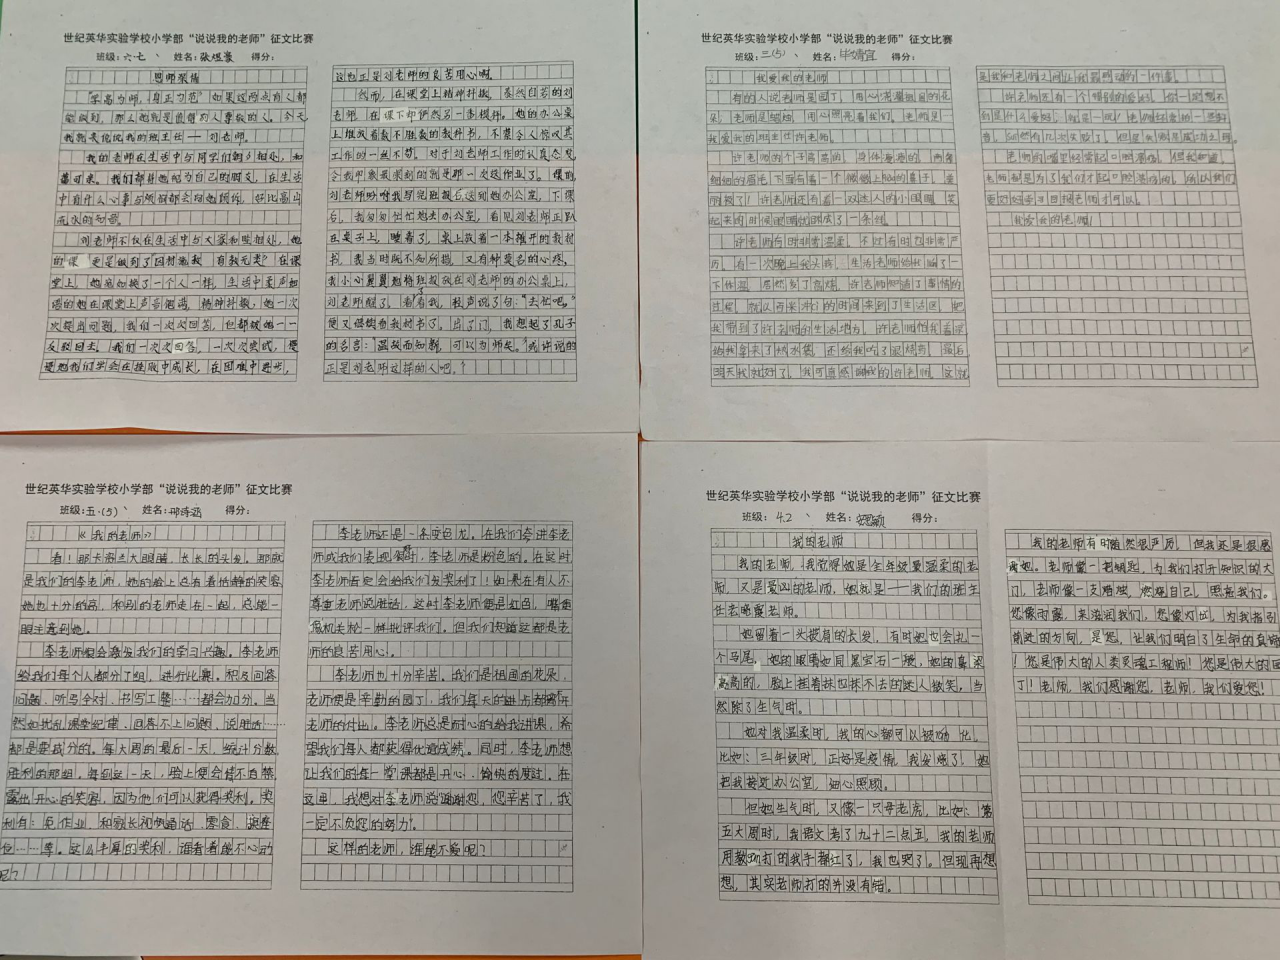 世纪英华实验学校小学部“说说我的老师”征文比赛
班级：六·七 姓名：张煜豪 得分：
恩师深情
“学高为师，身正为范”如果这两点有人都
能做到，那么她就是值得的人尊敬的人，今天
我就来说说我的班主任——刘老师。
我的老师在生活中与同学们朝夕相处，和
蔼可亲。我们都把她视为自己的朋友，在生活
中有什么心事与烦恼都会向她倾诉，好比高山
流水的知音。
刘老师不仅在生活中与大家和睦相处，她
的课 更是做到了因材施教 有教无类？在课
堂上，她宛如换了一个人一样，生活中柔声细
语的她在课堂上声音饱满，精神抖擞，她一次
次提出问题，我们一次次回答，但都被她一一
反驳回去，我们一次次回答，一次次尝试，慢
慢地我们学会在挫败中成长，在困难中进步，
这也正是刘老师的良苦用心啊。
然而，在课堂上精神抖擞、泰然自若的刘
老师 在课下却俨然另一套模样。她的办公桌
上堆放着数不胜数的教科书，不禁令人惊叹其
工作的一丝不苟。对于刘老师工作的认真态度，
令我印象最深刻的就是那一次送作业了。课前
刘老师吩咐我写完班报后送到她办公室，下课
后，我匆匆忙忙跑去办公室，看见刘老师正趴
在桌子上，睡着了，桌上放着一本摊开的教材
书，我当时既不知所措，又有种莫名的心疼，
我小心翼翼地将班报放在刘老师的办公桌上，
刘老师醒了，看看我，轻声说了句：“去忙吧。”
便又继续由我材书了。出了门，我想起了孔子
的名言：温故而知新，可以为师矣。”或许说的
正是刘老师这样的人吧。？
世纪英华实验学校小学部“说说我的老师”征文比赛
班级：三(5) 姓名：毕婧宜 得分：
我爱我的老师
有的人说老师是园丁，用心浇灌祖国的花
朵，老师是蜡烛，用心照亮着我们。老师是一
我爱我的班主任许老师。
许老师的个子高高的，身体瘦瘦的，两条
细细的眉毛下面有着一个微微上翘的鼻子，美
丽极了！许老师还有着一双迷人的小圆眼，笑
起来的时候眼睛就眯成了一条缝。
许老师有时非常温柔，不过有时也非常严
厉。有一次晚上我头疼，生活老师给我量了一
下体温，居然到了高烧，许老师知道了事情的
过程，就以百米冲刺的时间来到了生活区，把
我带到了许老师的生活地方。许老师怕我着凉
给我拿来了热水袋，还给我吃了退烧药。最后
明天我就好了，我可真感谢我的许老师，这就
是我和老师之间让我最感动的一件事。
许老师还有一个特别的爱好，你一定想不
到是什么爱好，就是一吃！
老师的嘴里经常起口腔溃疡，但我知道，
老师都是为了我们才起口腔溃疡的，所以我们
要好好学习回报老师才可以。
我爱我的老师！
世纪英华实验学校小学部“说说我的老师”征文比赛
班级：五·(5) 姓名：邢诗涵 得分：
《我的老师》
看！那卡姿兰大眼睛，长长的头发，那就
是我们的李老师，她的脸上总有着恬静的笑容，
她也十分的高，和别的老师走在一起，总能一
眼注意到她。
李老师很会激发我们的学习兴趣。李老师
给我们每个人都分了组，进行比赛。积极回答
问题，听写全对，书写工整……都会加分。当
然如扰乱课堂纪律，回答不上问题，说脏话……
都是要减分的。每大周的最后一天，统计分数
胜利的那组，每到这一天，脸上便会情不自禁
露出开心的笑容，因为他们可以获得奖利，奖
利有：免作业，和家长视频通话，零食，
位……等。这么丰厚的奖利，谁看着能不心动
呢？
李老师还是一条变色龙。在我们夸讲李老
师或我们表现领时，李老师是粉色的。在这时，
李老师肯定会给我们发奖利了！如果在有人不
尊重老师说脏话，这时李老师便是红色，嘴像
像机关枪一样批评我们。但我们知道这都是老
师的良苦用心。
李老师也十分辛苦。我们是祖国的花朵，
老师便是辛勤的园丁，我们每天的进步都离不开
老师的付出。李老师总是耐心的给我讲课，希
望我们每人都获得优越成绩。同时，李老师想
让我们的每一堂课都是开心、愉快的度过。在
这里，我想对李老师说谢谢您，您辛苦了，我
一定不负您的努力。
这样的老师，谁能不爱呢？
世纪英华实验学校小学部“说说我的老师”征文比赛
班级：4.2 姓名：安思颖 得分：
我的老师
我的老师，我觉得她是全年级最温柔的老
师，又是最凶的老师，她就是——我们的班主
任宏晓霞老师。
她留着一头披肩的长发，有时她也会扎一
个马尾。她的眼睛如同黑宝石一般，她的鼻梁
高高的，脸上挂着抹也抹不去的迷人微笑，当
然除了生气时。
她对我温柔时，我的心都可以被融化。
比如：三年级时，正好是疫情，我发烧了！她
把我接近办公室，细心照顾。
但她生气时，又像一只母老虎，比如：第
五大周时，我语文考了九十二点五，我的老师
用教棍打的我手都红了，我也哭了。但现再想
想，其实老师打的并没有错。
我的老师有时虽然很严厉，但我还是很感
谢她。老师像一把钥匙，为我们打开知识的大
门，老师像一支蜡烛，燃烧自己，照亮我们。
您像雨露，来滋润我们，您像灯塔，为我指引
前进的方向，是您，让我们明白了生命的真谛
！您是伟大的人类灵魂工程师！您是伟大的园
丁！老师，我们感谢您，老师，我们爱您！